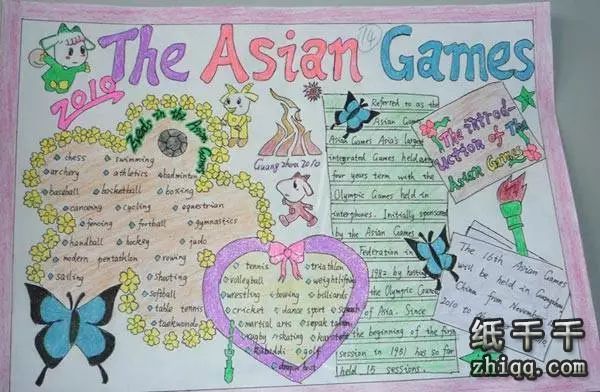 The Asian Games
2010
14
Events in the Asian Games
chess
swimming
archery
athletics
badminton
baseball
basketball
boxing
canoeing
cycling
equestrian
fencing
football
gymnastics
handball
hockey
judo
modern pentathlon
rowing
sailing
shooting
softball
table tennis
taekwondo
Guang Zhou 2010
tennis
triathlon
volleyball
weightlifting
wrestling
bowling
billiards
cricket
dance sport
martial arts
sepak takraw
rugby
skating
karate
kabaddi
golf
dragon boat
Referred to as the
Asian Games
Asian Games Asia's largest
integrated Games held every
four years term with the
Olympic Games held in
interphones. Initially sponsored
by the Asian Games
Federation in
1982 by
the Olympic Council
of Asia. Since
the beginning of the first
session in 1951 has so far
held 15 sessions.
The introd-
uction of The
Asian Games
The 16th Asian Games
will be held in Guangzhou
China from November
2010 to
纸千千
zhiqq.com